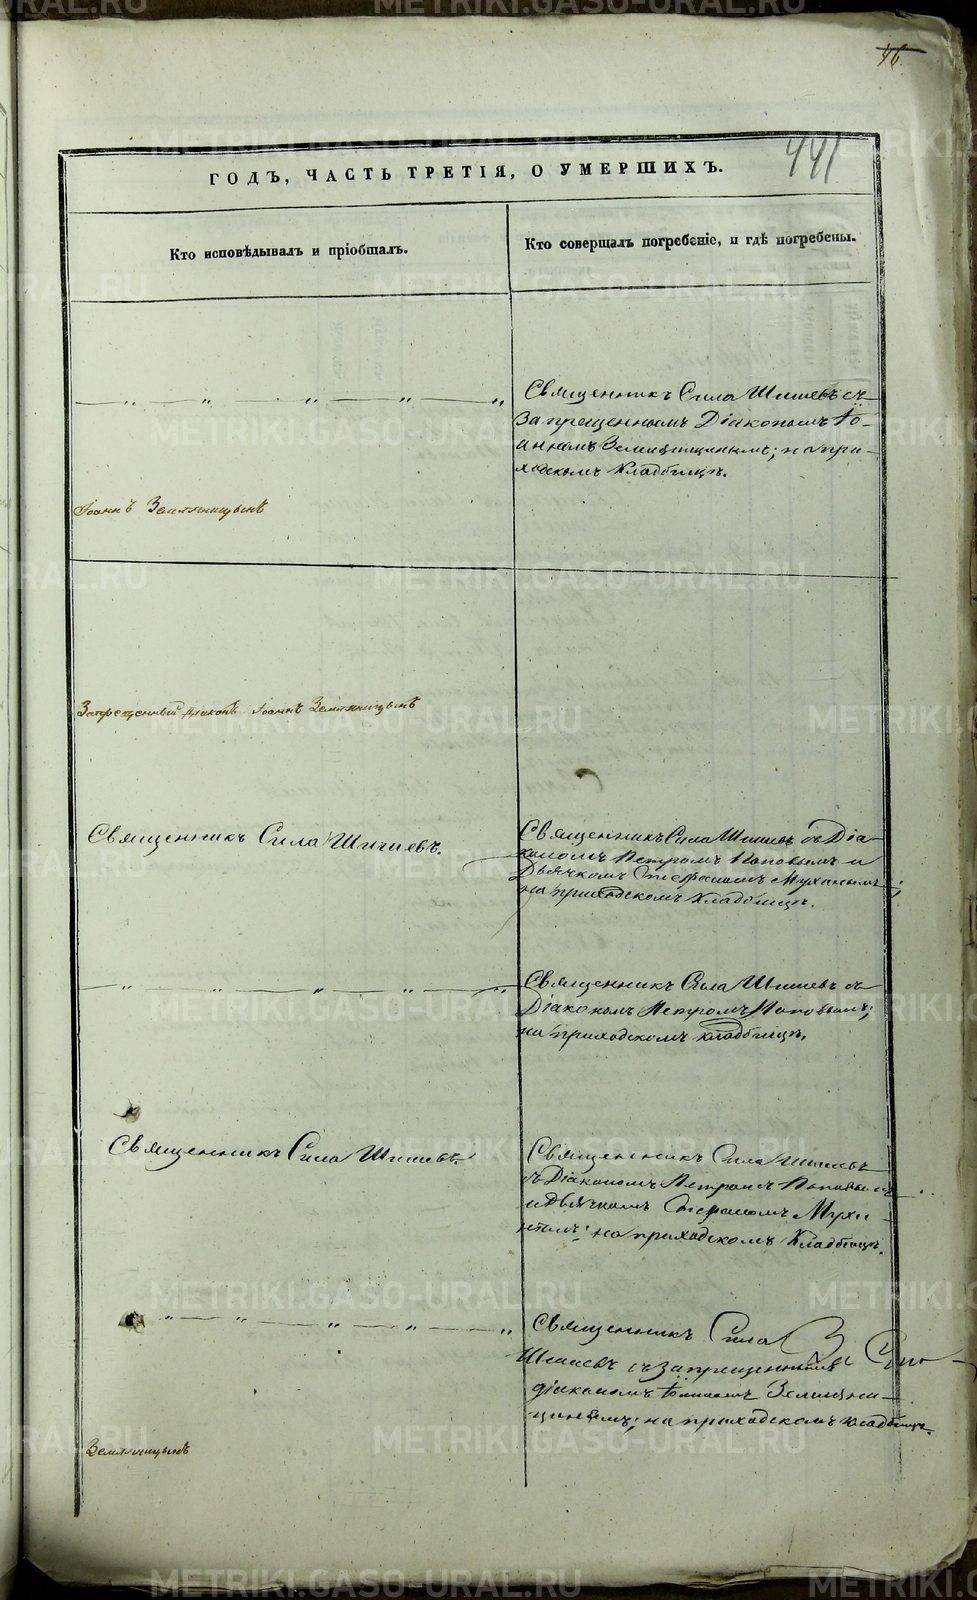 46.
441
ГОДЪ, ЧАСТЬ ТРЕТІЯ, О УМЕРШИХЪ.
Кто исповѣдывалъ и пріобщалъ.
Кто совершалъ погребеніе, и гдѣ погребены.
Священникъ Сила Шишевъ съ
Запрещеннымъ Діакономъ Іо-
анномъ Земляницынымъ; на при-
ходскомъ Кладбищѣ.
Іоаннъ Земляницынъ
Запрещенный діаконъ Іоаннъ Земляницынъ
Священникъ Сила Шишевъ.
Священникъ Сила Шишевъ съ Діа-
кономъ Петромъ Поповымъ и
Дьячкомъ Стефаномъ
на приходскомъ Кладбищѣ.
Священникъ Сила Шишевъ съ
Діакономъ Петромъ Поповымъ;
на приходскомъ кладбищѣ.
Священникъ Сила Шишевъ.
Священникъ Сила Шишевъ
съ Діакономъ Петромъ Поповымъ
и Дьячкомъ Стефаномъ
на приходскомъ Кладбищѣ.
Священникъ Сила
Шишевъ съ запрещеннымъ
діакономъ Іоанномъ Земляни-
цынымъ; на приходскомъ кладбищѣ.
Земляницынъ
METRIKI.GASO-URAL.RU